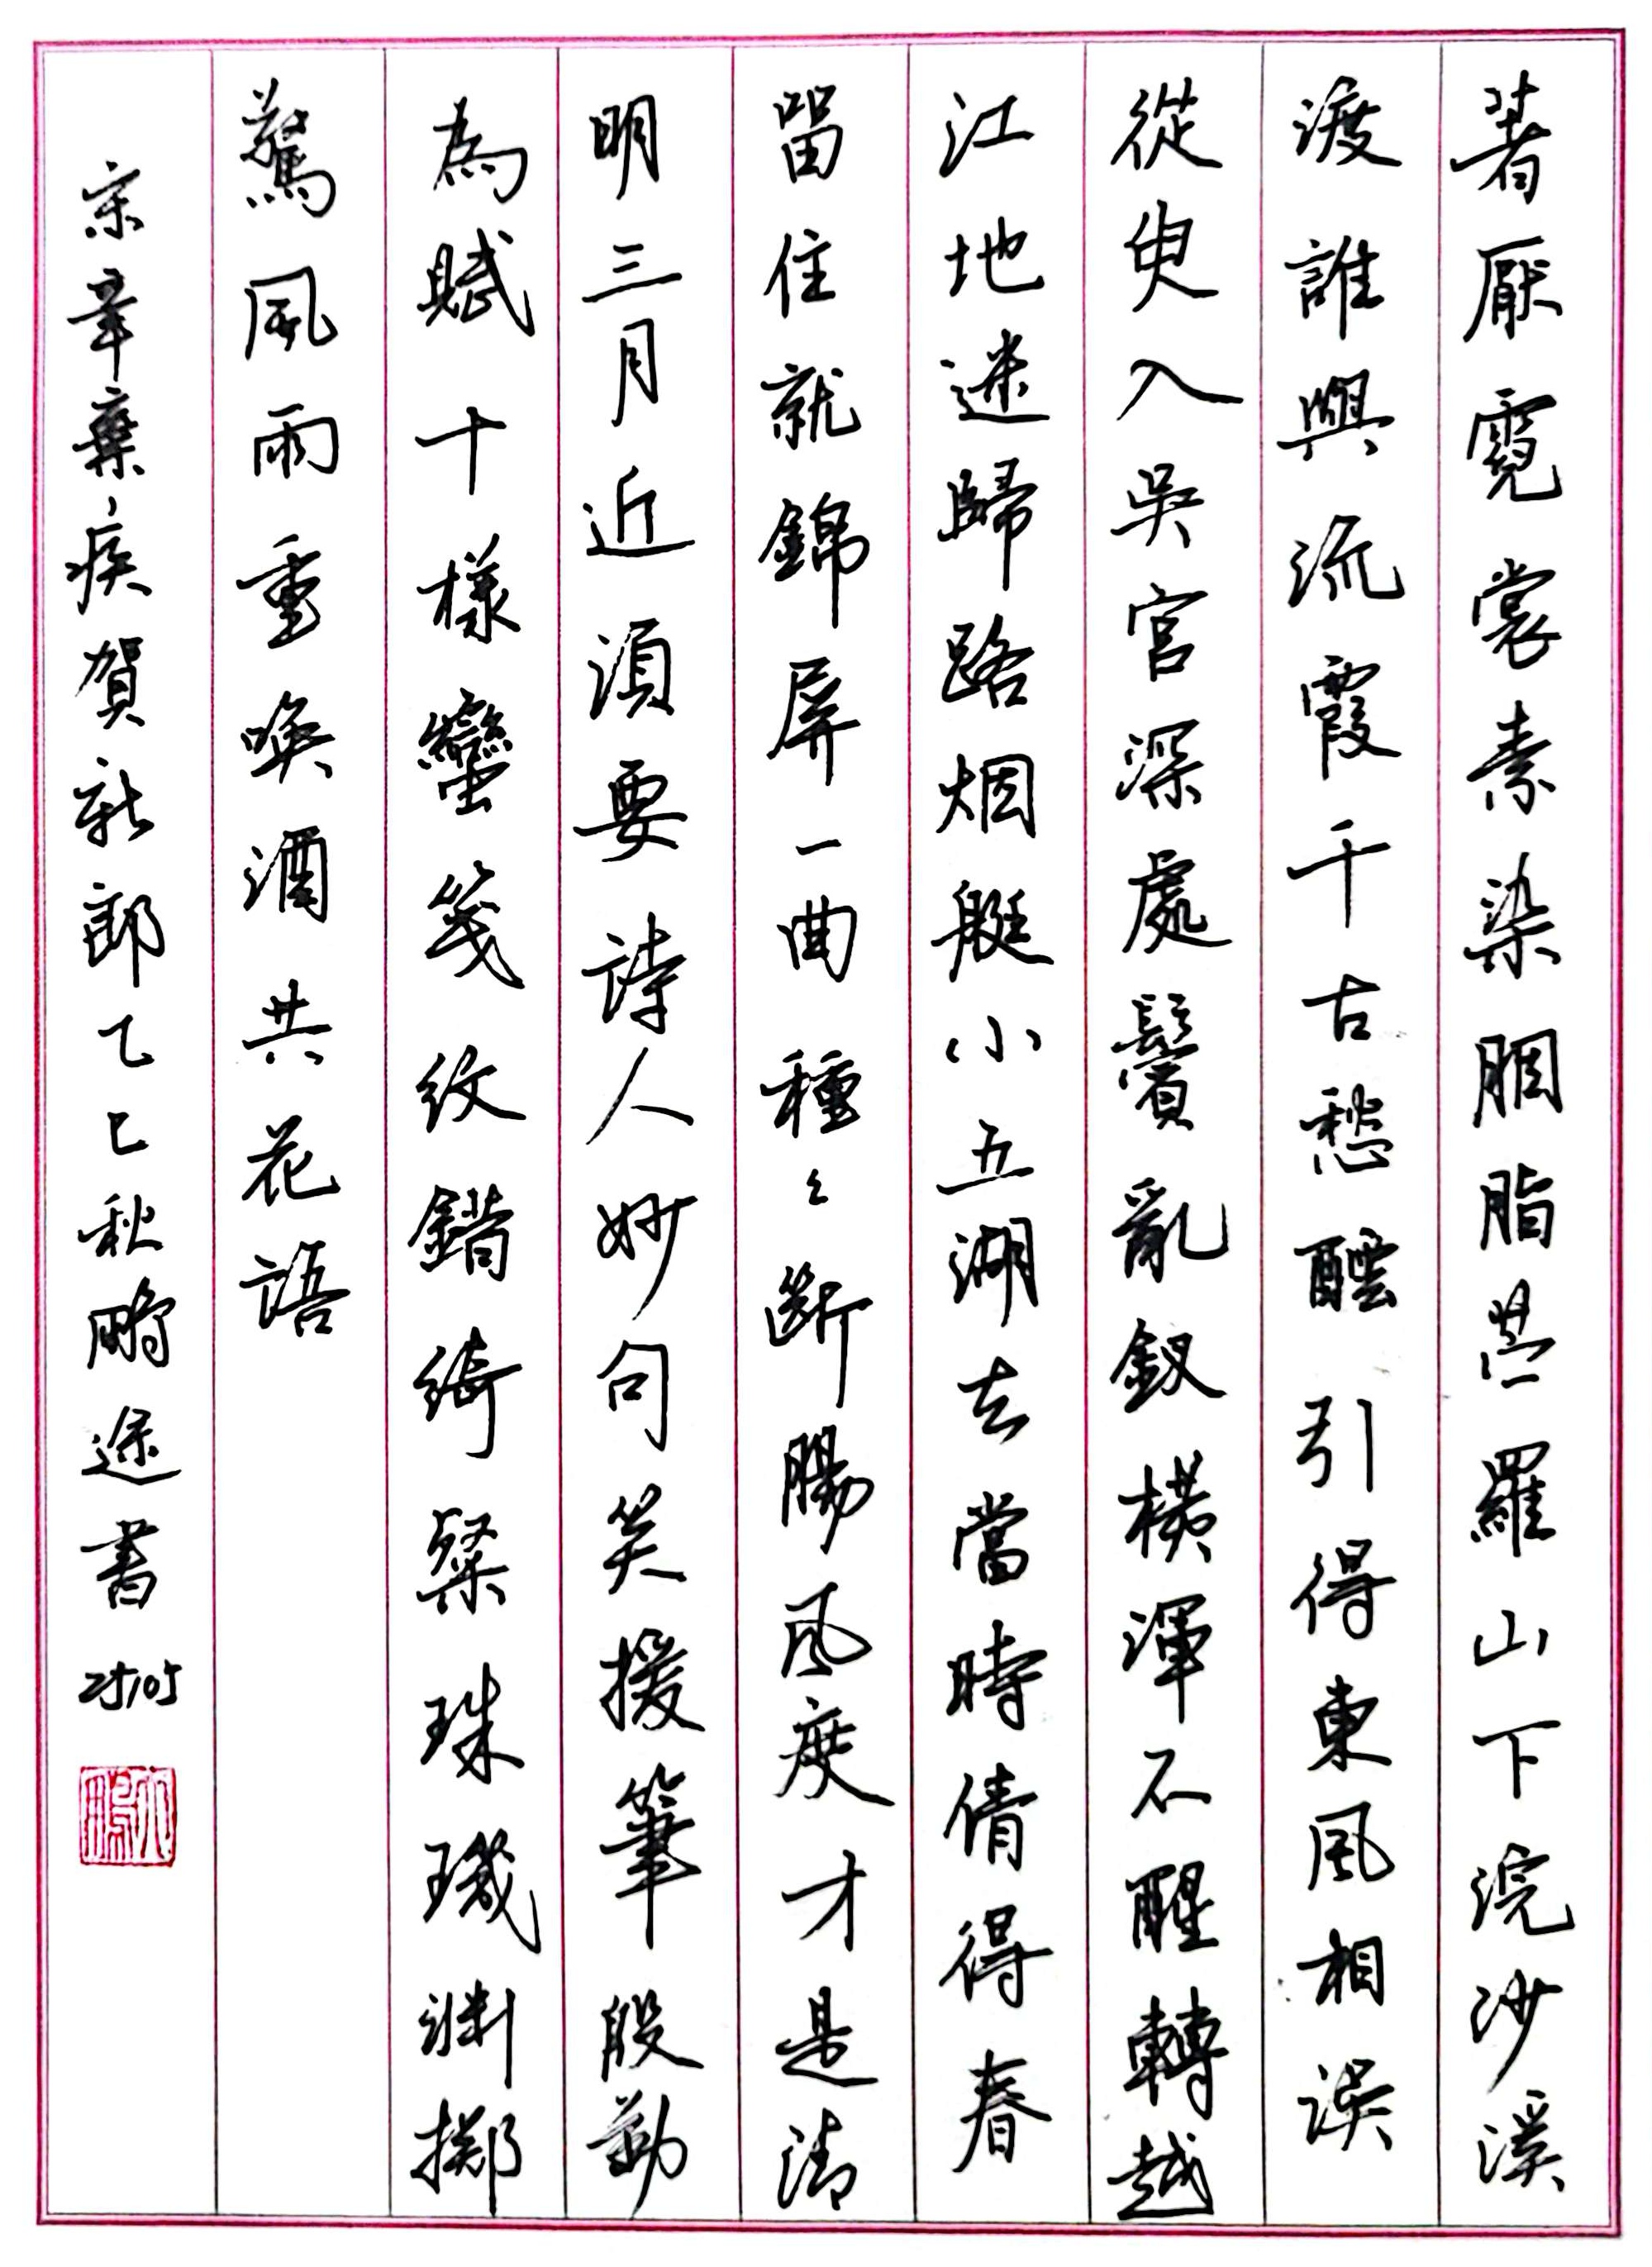 著厭霓裳素染胭脂苎羅山下浣沙溪
渡誰與流霞千古愁醞引得東風相误
從臾入吳宮深處鬢亂釵橫渾不醒轉越
江地迷歸路烟艇小五湖去當時倩得春
留住就錦屏一曲種々斷腸風度才是清
明三月近須要詩人妙句笑援筆殷勤
為賦十樣蠻箋紋錯綺粲珠璣渊擲
驚風雨重喚酒共花語
宋辛棄疾賀新郎乙巳秋鵬途書